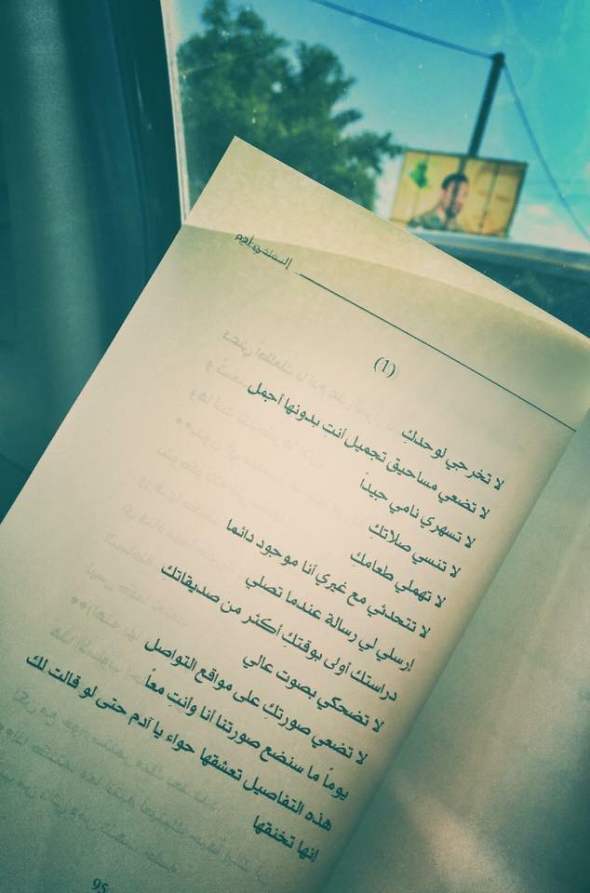 (1)
لا تخرجي لوحدكِ
لا تضعي مساحيق تجميل أنتِ بدونها أجمل
لا تسهري نامي جيداً
لا تنسي صلاتكِ
لا تهملي طعامكِ
لا تتحدثي مع غيري أنا موجود دائما
إرسلي لي رسالة عندما تصلي
دراستك أولى بوقتكِ أكثر من صديقاتك
لا تضحكي بصوت عالي
لا تضعي صورتكِ على مواقع التواصل
يوماً ما سنضع صورتنا أنا وأنتِ معاً
هذه التفاصيل تعشقها حواء يا آدم حتى لو قالت لك
إنها تخنقها
95